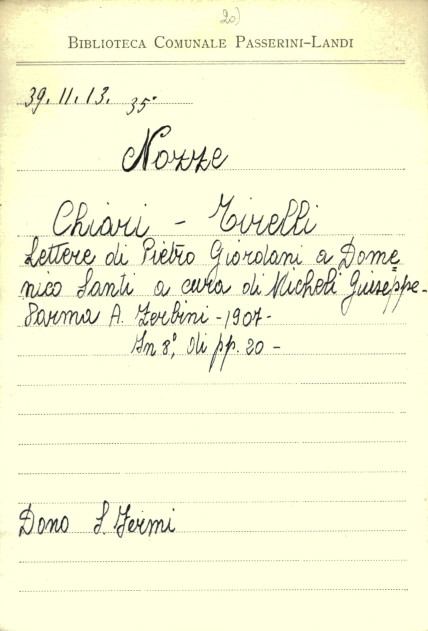 20)
BIBLIOTECA COMUNALE PASSERINI-LANDI
39.11.13. 35°
Nozze
Chiari - Tirelli
Lettere di Pietro Giordani a Dome
nico Santi a cura di Micheli Giuseppe-
Parma A. Zerbini - 1907-
In 8°, di pp. 20 -
Dono S. Fermi